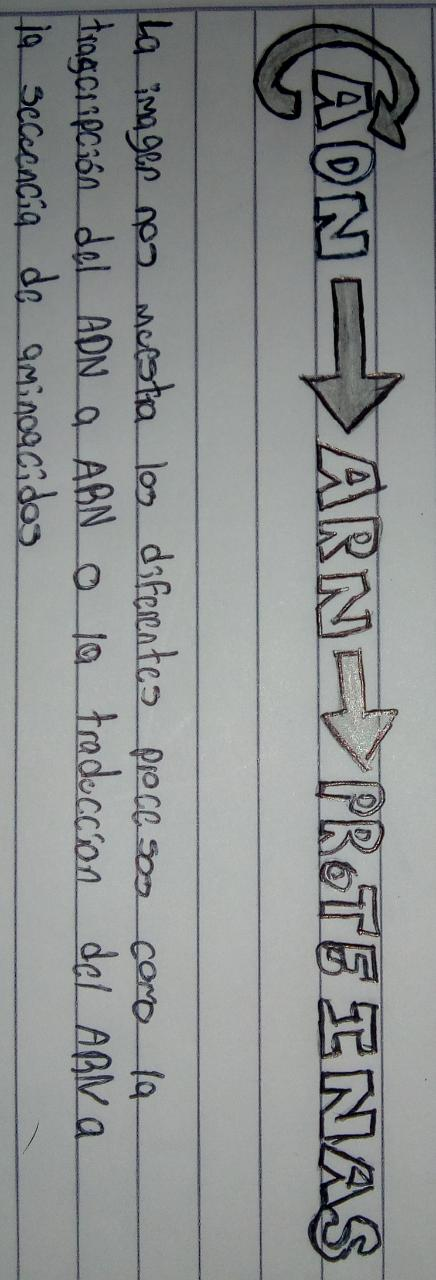 ADN → ARN → PROTEINAS
La imagen nos muestra los diferentes procesos como la
trascripción del ADN a ARN o la traduccion del ARN a
la secuencia de aminoacidos